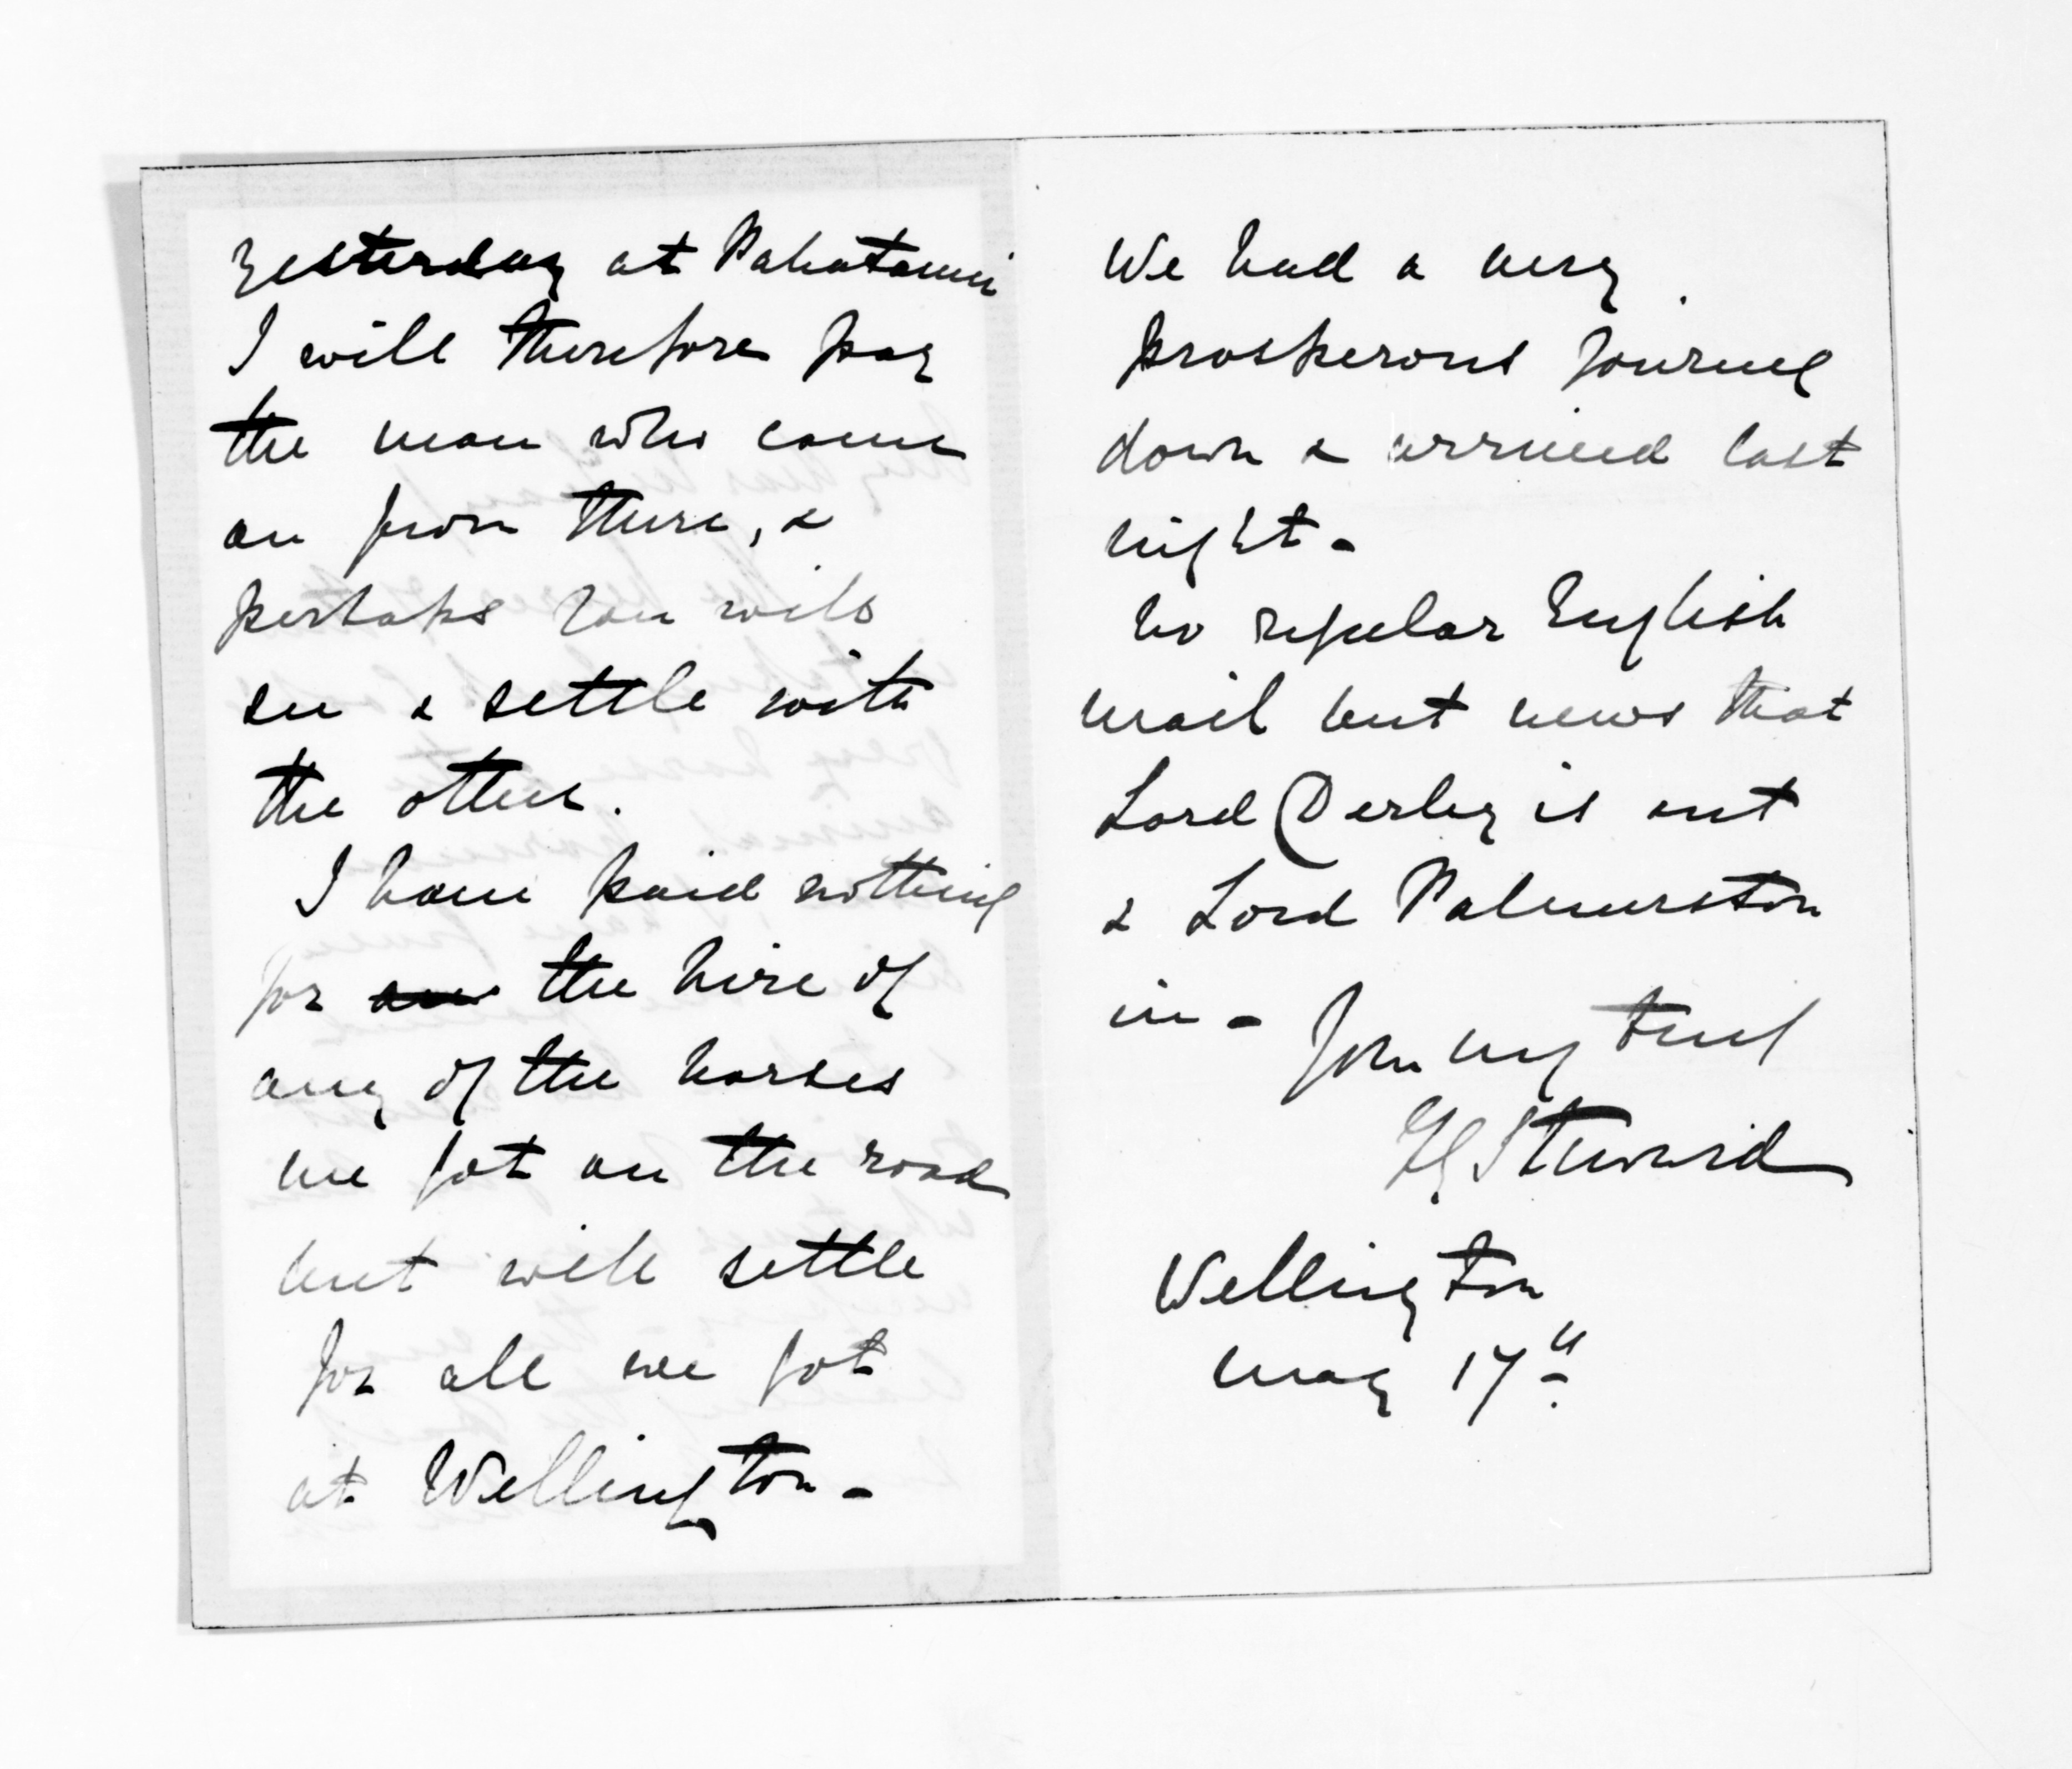 Yesterday at Pahatanui
I will therefore pay
the man who came
on from there, &
perhaps you will
see & settle with
the other.
I have paid nothing
for the hire of
any of the horses
we got on the road
but will settle
for all we got
at Wellington -
We had a very
prosperous journey
down & arrived last
night -
No regular English
mail but news that
Lord Derby is out
& Lord Palmerston
in - Yours very truly
Wellington
May 17th